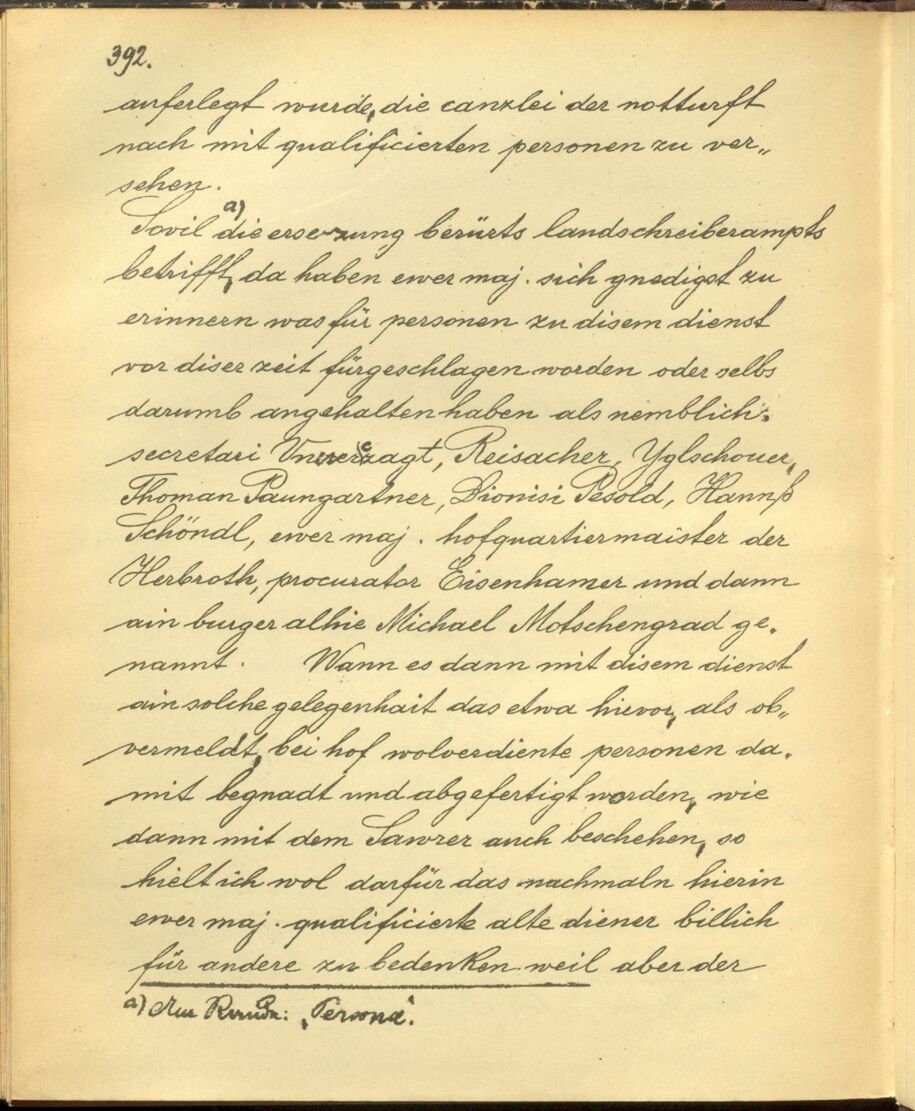 392.
auferlegt wurde, die canzlei der notturft
nach mit qualificierten personen zu ver„
sehen.
Sovil a) die ersezung berürts landschreiberampts
betrifft, da haben ewer maj. sich gnedigst zu
erinnern was für personen zu disem dienst
vor diser zeit fürgeschlagen worden oder selbs
darumb angehalten haben als nemblich:
secretari Unverzagt, Reisacher, Yglschouer,
Thoman Paungartner, Dionisi Pesold, Hannß
Schöndl, ewer maj. hofquartiermaister der
Herbroth, procurator Eisenhamer und dann
ain burger alhie Michael Motschengrad ge„
nannt. Wann es dann mit disem dienst
ain solche gelegenhait das etwa hievor, als ob„
vermeldt, bei hof wolverdiente personen da„
mit begnadt und abgefertigt worden, wie
dann mit dem Sawrer auch beschehen, so
hielt ich wol darfür das nachmaln hierin
ewer maj. qualificierte alte diener billich
für andere zu bedenken weil aber der
a) Am Rande: „Persona“.